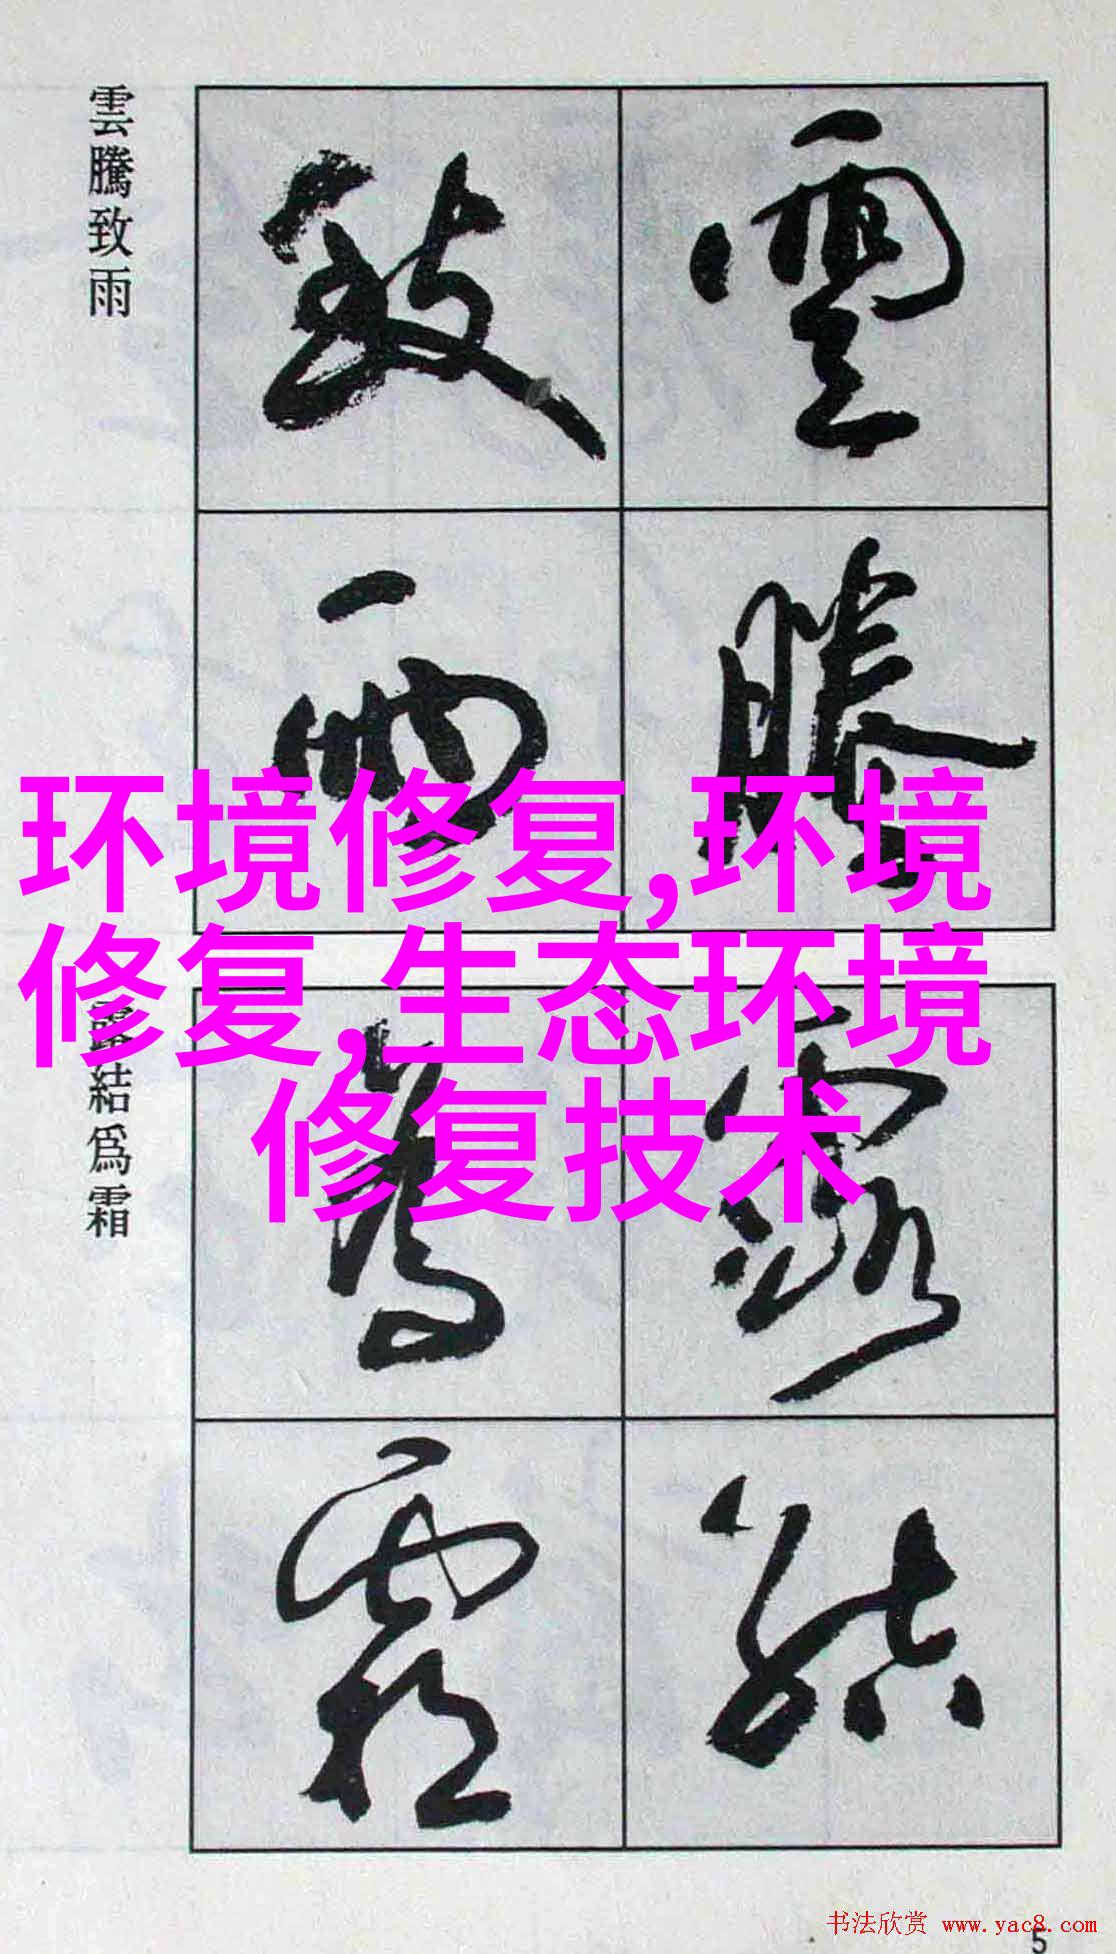 雲騰致雨
雲騰
致雨
環境修复,环境
修复,生态环境
修复技术
露結為霜
露結
為霜
书法欣赏 www.yac8.com
5